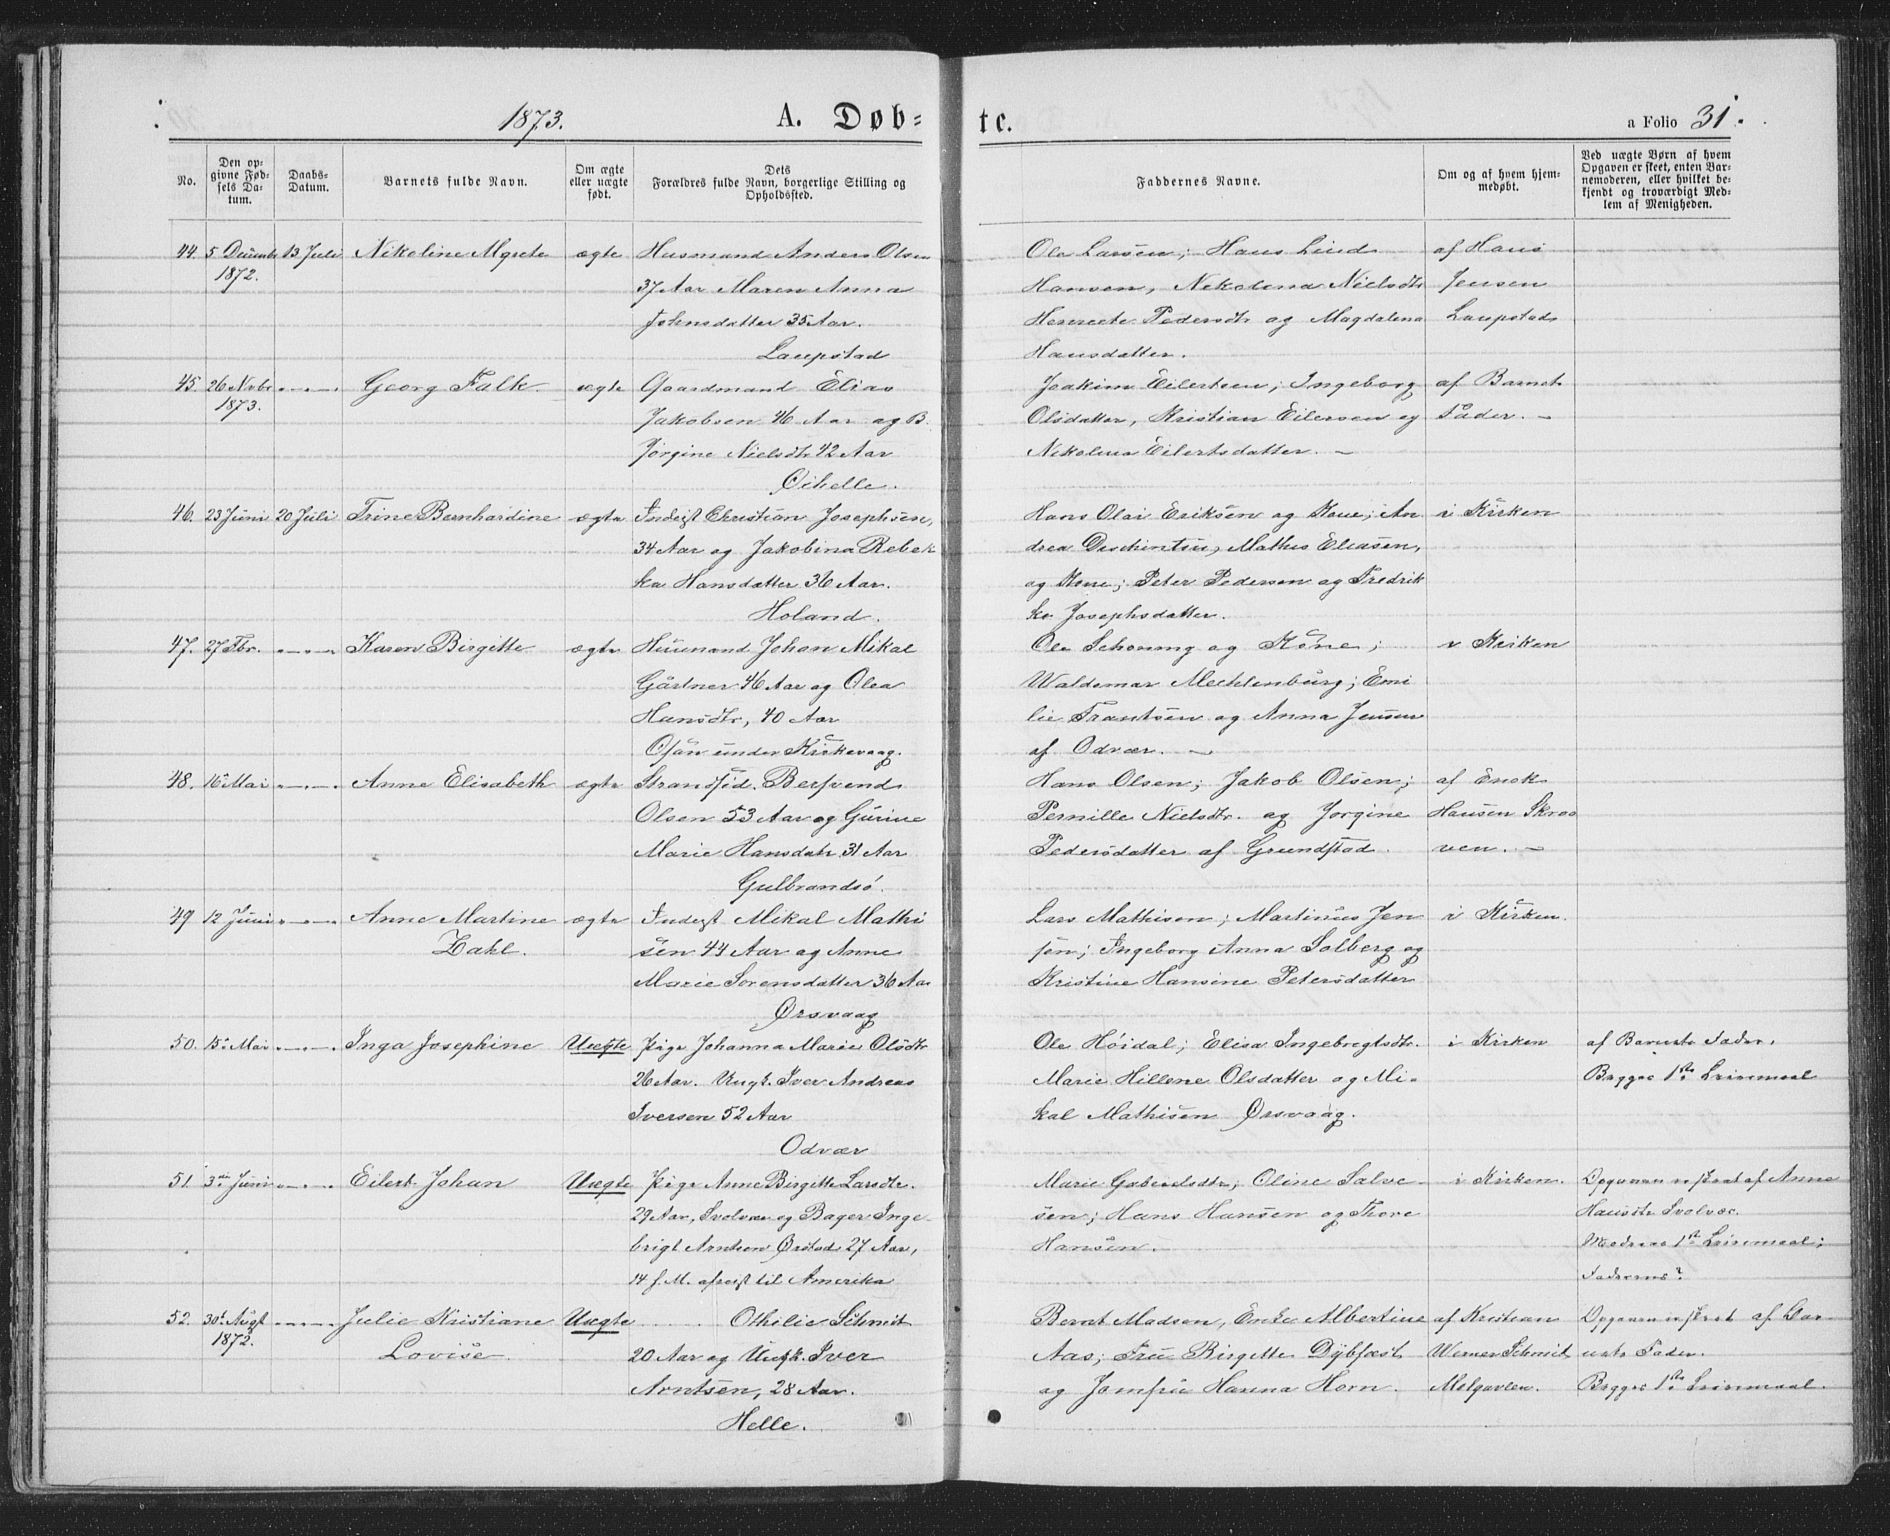 1873. A. Døb= te. a Folio 31.
No. Den opgivne Fødsels Datum. Daabs-Datum. Barnets fulde Navn. Om ægte eller uægte født. Dets Forældres fulde Navn, borgerlige Stilling og Opholdssted. Faddernes Navne. Om og af hvem hjemmedøbt. Ved uægte Børn af hvem Opgaven er skeet, enten Barnemoderen, eller hvilket bekjendt og troværdigt Medlem af Menigheden.
44. 5 Decembr 13 Juli Nikoline Mgrete ægte Husmand Anders Olsen Ole Larsen; Hans Lind af Hans
1872. 37 Aar Maren Anna Hansen, Nekolina Nielsdtr Jensen
Johnsdatter 35 Aar. Pedersdtr og Magdalena Laupstad
Laupstad Hansdatter.
45. 26 Novbr Georg Falk ægte Gaardmand Elias Joakim Eilertsen; Ingeborg af Barnets
1873. Jakobsen 46 Aar og B. Olsdatter, Kristian Eilersen og Fader. –
Jørgine Nielsdtr 42 Aar Nikolina Eilertsdatter. –
Øihelle.
46. 23 Juni 20 Juli Trine Bernhardine ægte Inderst Christian Josephsen, Hans Olai Eriksen og Kone; An i Kirken
34 Aar og Jakobina Rebek drea Mathis Eliasen,
ka Hansdatter 36 Aar. og Kone; Peter Pedersen og Fredrik
Holand. ke Josephsdatter.
47. 27 Fbr. Karen Birgitte ægte Johan Mikal Ole Schoning og Kone; i Kirken
Gärtner 46 Aar og Olea Waldemar Mechlenburg; Emi
Hansdtr, 40 Aar lie Frantsen og Anna Jensen
under Kirkevaag. af Odvær. –
48. 16 Mai Anne Elisabeth ægte Strandsid. Hans Olsen; Jakob Olsen; af Enok
Olsen 53 Aar og Gurine Pernille Nielsdtr. og Jorgine Hansen Skroo
Marie Hansdatr 31 Aar Pedersdatter af Grundstad. ven. –
Gulbrandsö.
49 12 Juni Anne Martine ægte Inderst Mikal Mathi Lars Mathisen; Martinus Jen i Kirken.
Zahl. sen 44 Aar og Anne sen; Ingeborg Anna Solberg og
Marie Sørensdatter 36 Aar Kristine Hansine Petersdatter
Ørsvaag
50. 15. Mai Inga Josephine Uægte Pige Johanna Marie Olsdtr Ole Höidal; Elisa Ingebregtsdtr. i Kirken af Barnets Fader.
26 Aar. Ungk. Iver Andreas Marie Hillene Olsdatter og Mi- Begges 1ste Leiermaal
Iversen 52 Aar kal Mathisen Ørsvaag.
Odvær
51. 3. Juni Eilert Johan Uægte Pige Anne Birgitte Larsdtr. Marie Gabrielsdtr, Oline Salve- i Kirken. Opgaven er skeet af Anne
29 Aar, Svolvær og Bager Inge- sen; Hans Hansen og Thore Hansdtr Svolvær.
brigt Arntsen Ørstad 27 Aar, Hansen. Moderens 1st Leiermaal;
14 f. M. afreist til Amerika Faderens?
52. 30. Augt Julie Kristiane Uægte Othilie Schmidt Bernt Madsen, Enke Albertine af Kristian Opgaven er skeet af Bar-
1872. Lovise. 20 Aar og Ungk. Iver Aas; Fru Birgitte Dybfest Werner Schmit nets Fader.
Arntsen, 28 Aar. og Jomfru Hanna Horn. Molgavlen. Begges 1ste Leiermaal.
Helle.